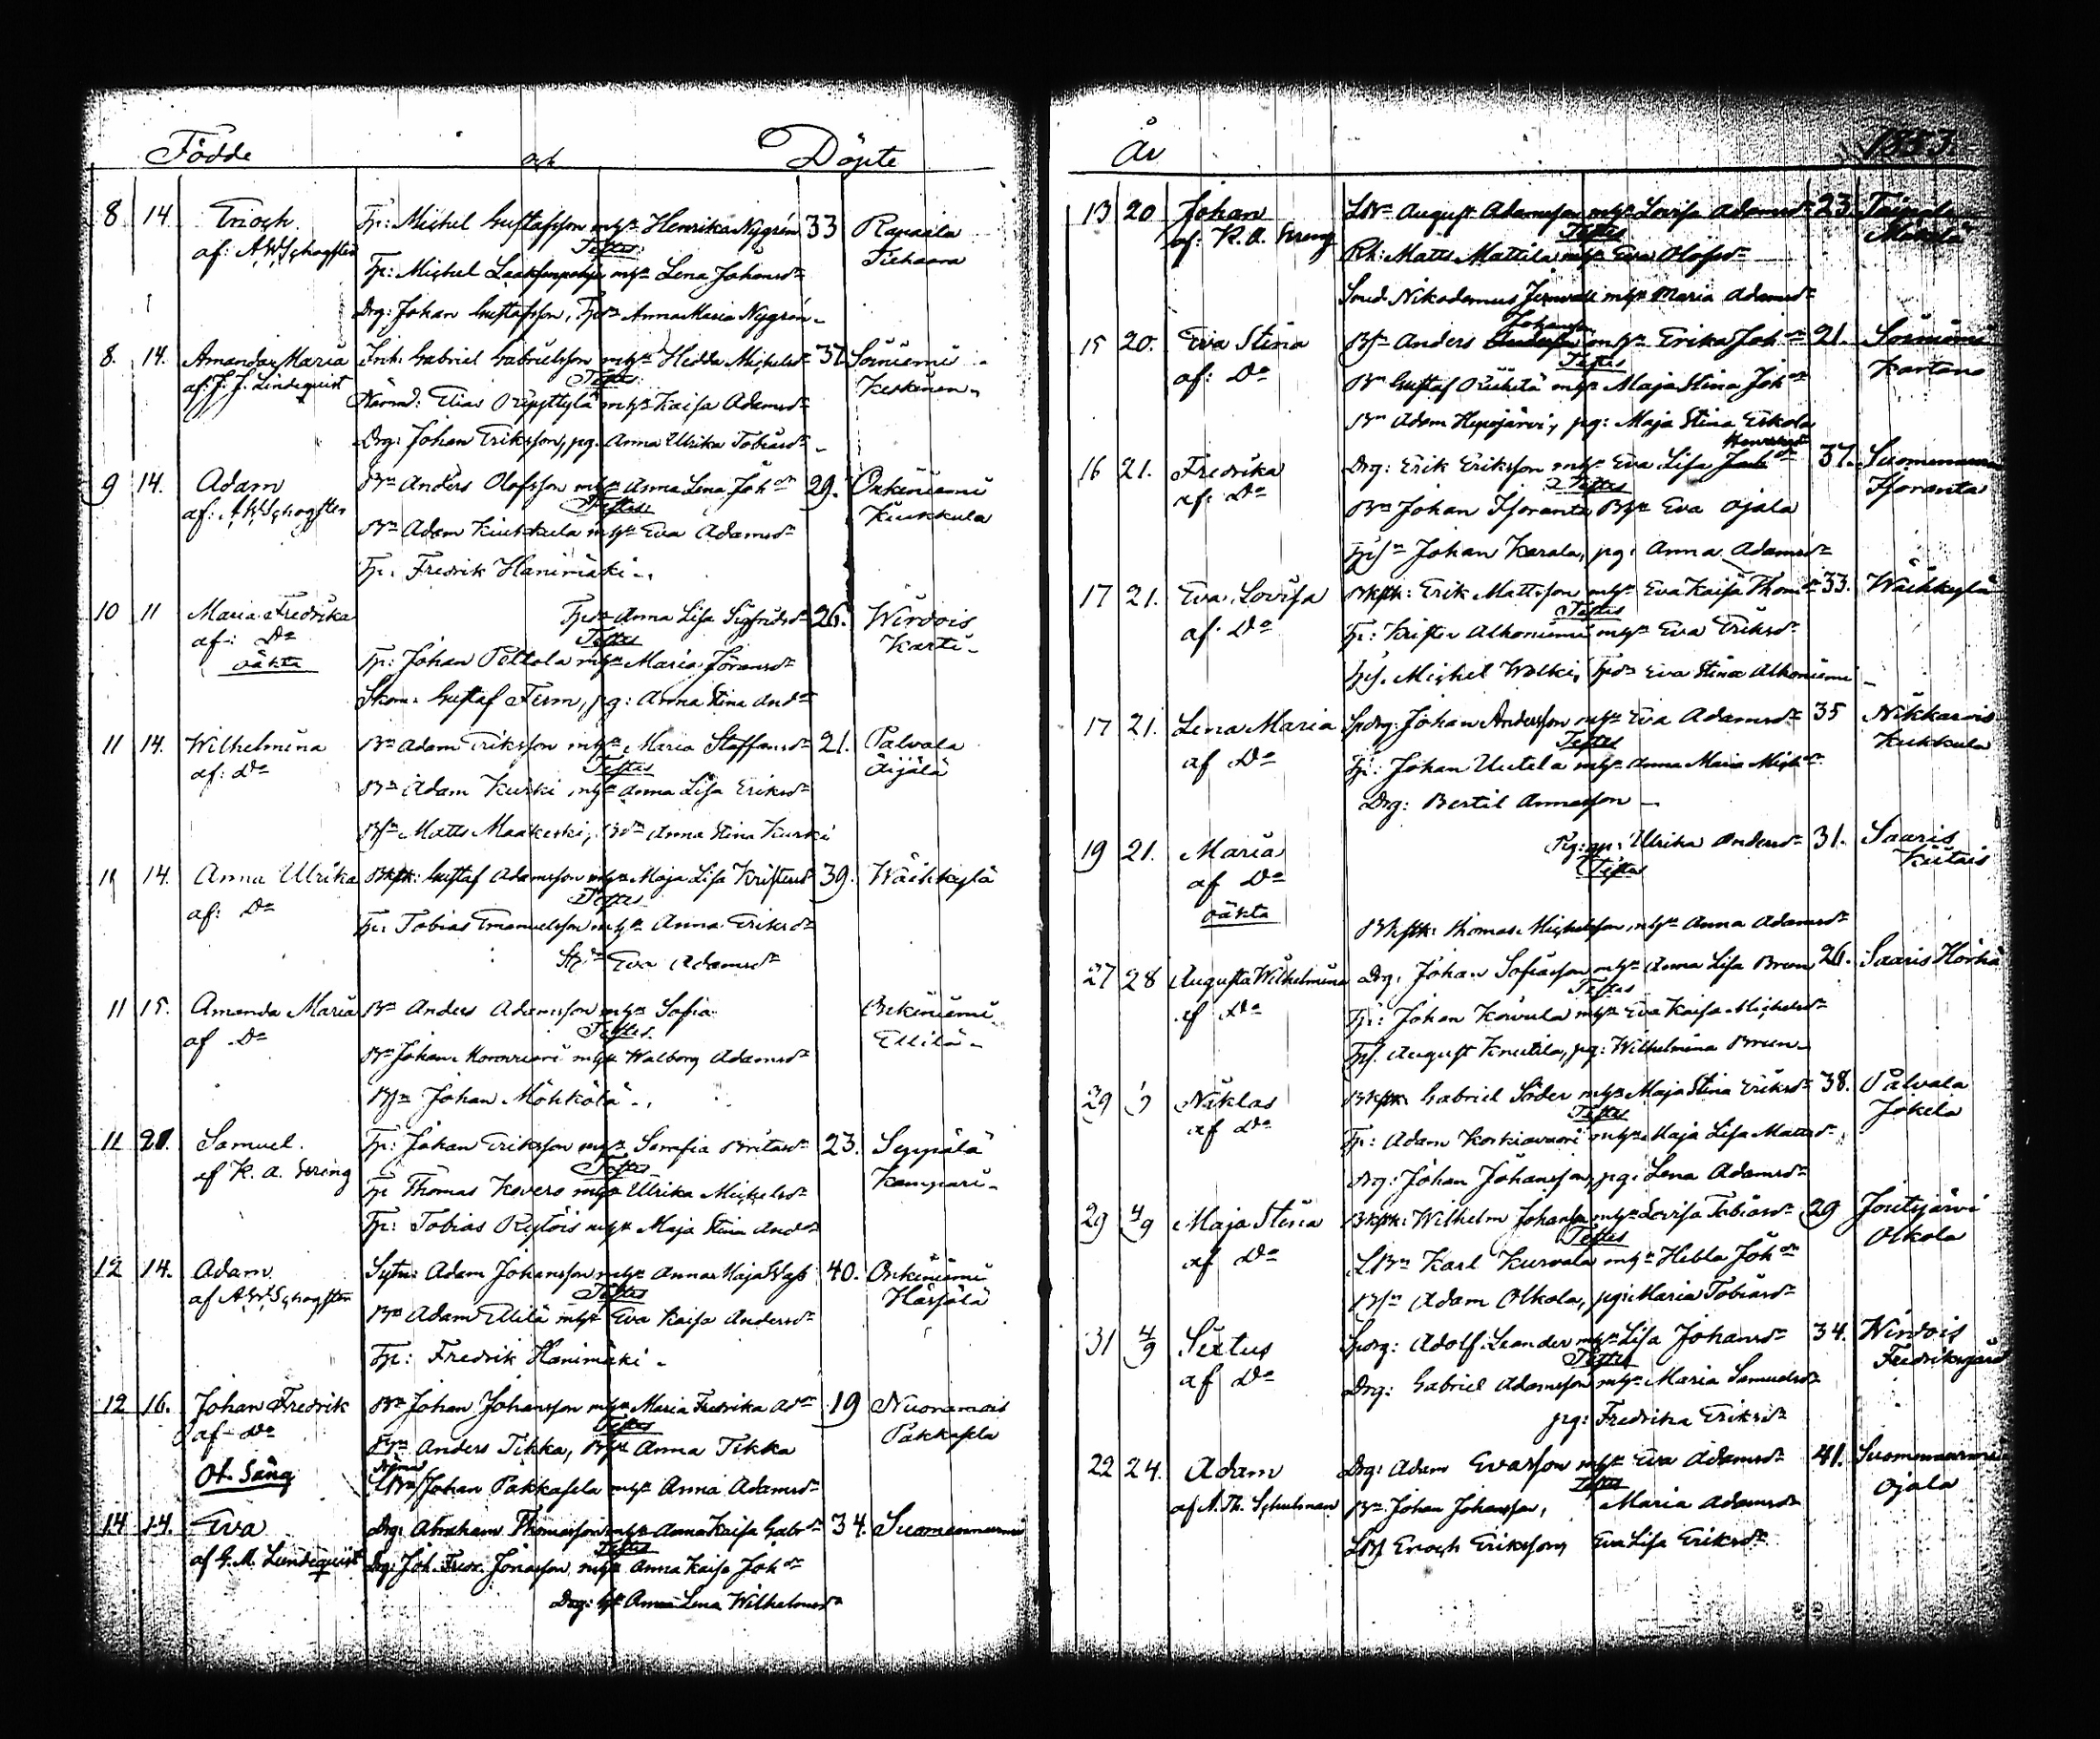 Födde och Döpte
8 14. Enoch Tp: Michel Gustafsson m. h:u Henrika Nygrén 33 Rapaala
af: A.W. Testes:
Tp: Michel m. h:u Lena Johansd:r
Drg: Johan Gustafsson, Tpd:r Anna Maria Nygrén
8. 14. Amanda Maria Inh: Gabriel Gabrielsson m. h:u Hedda Michelsd:r 37 Soiniemi
af J. J. Lindequist Testes: Keskinen
Nämd: Elias m. h:u Kaisa Adamsd:r
Drg: Johan Eriksson, pg. Anna Ulrika Tobiasd:r
9 14. Adam B:n Anders Olofsson m. h:u Anna Lena Joh:dr 29. Onkiniemi
af: A.W. Testes: Kukkula
B:n Adam Kukkula m. h:u Eva Adamsd:r
Tp. Fredrik Hanimäki
10 11 Maria Fredrika Tpd:r Anna Lisa Sigfridsd:r 26. Wirdois
af: D:o Testes Karti
oäkta Tp: Johan Peltola m. h:u Maria Göransd:r
Skom: Gustaf Ferm, pg: Anna Stina And:dr
11 14. Wilhelmina B:n Adam Eriksson m. h:u Maria Staffansd:r 21. Palvala
af: D:o Testes Äijälä
B:n Adam Kurki m. h:u Anna Lisa Eriksd:r
Bs:n Matts Maakeski, Bd:r Anna Stina Kurki
11 14. Anna Ulrika Bkfth: Gustaf Adamsson m. h:u Maja Lisa Kristersd 39. Wäihkylä
af: D:o Testes
Tp: Tobias Emanuelsson m. h:u Anna Eriksd:r
Eva Adamsd:r
11 15. Amanda Maria B:n Anders Adamsson m. h:u Sofia Onkiniemi
af D:o Testes. Ellilä
B:n Johan m. h:u Walborg Adamsd:r
Bs:n Johan Möhkölä
11 20. Samuel. Tp: Johan Eriksson m. h:u Serafia Britasd:r 23. Seppälä
af K. A. Testes Kampari
Tp Thomas Kovero m. h:u Ulrika Michelsd:r
Tp: Tobias m. h:u Maja Stina And:dr
12 14. Adam Sytn: Adam Johansson m. h:u Anna Maja Wass 40. Onkiniemi
af A.W. Testes Härjälä
B:n Adam Ellilä m. h:u Eva Kaisa Andersd:r
Tp: Fredrik Hanimäki
12 16. Johan Fredrik B:n Johan Johansson m. h:u Maria Fredrika Ad:dr 19 Nuoramois
af D:o Testes Pakkasela
Ot. Säng Bs:n Anders Tikka, Bh:u Anna Tikka
Johan Pakkasela m. h:u Anna Adamsd:r
14 14. Eva Drg: Abraham Thomasson m. h:u Anna Kaisa Gabr:dr 34.
af G. M. Lindequist Testes
Drg: Joh. Fredr. Jonasson m. h:u Anna Kaisa Joh:dr
Drg: h:u Anna Lena Wilhelmsd:r
År 1853
13 20 Johan LB:n August Adamsson m. h:u Lovisa Adamsd:r 23.
af: K. A. Testes
Rh: Matts Mattila m. h:u Eva Olofsd:r
Smed. Nikodemus m. h:u Maria Adamsd:r
Johansson
15 20. Eva Stina Bs:n Anders m. h:u Erika Joh:dr 21. Soiniemi
af: D:o Testes Kartano
B:n Gustaf m. h:u Maja Stina Joh:dr
B:n Adam Hepojärvi, pg: Maja Stina Erkola
Henriksd:r
16 21. Fredrika Drg: Erik Eriksson m. h:u Eva Lisa 37.
af: D:o Testes Isoranta
B:n Johan Isoranta Bh:u Eva Ojala
Tps:n Johan Karala, pg: Anna Adamsd:r
17 21. Eva Lovisa Bkfth: Erik Mattsson m. h:u Eva Kaisa Thom:dr 33. Wäihkylä
af: D:o Testes
Tp: Krister Alhoniemi m. h:u Eva Eriksd:r
Tps. Michel Wolki, Tpd:r Eva Stina Alhoniemi
17 21. Lena Maria Spdrg: Johan Andersson m. h:u Eva Adamsd:r 35 Nikkarois
af D:o Testes Kukkula
Tp: Johan Uutela m. h:u Anna Maria Mich:dr
Drg: Bertil Annasson
19 21. Maria Pig: Ulrika Andersd:r 31. Saaris
af D:o Testes
oäkta
Bkfth: Thomas Michelsson m. h:u Anna Adamsd:r
27 28 Augusta Wilhelmina Drg: Johan Sofiasson m. h:u Anna Lisa Brun 26. Saaris Hörhä
af D:o Testes
Tp: Johan m. h:u Eva Kaisa Michelsd:r
Tps. August Knutila, pg: Wilhelmina Brun
29 Niklas Bkfth Gabriel Söder m. h:u Maja Stina Eriksd:r 38. Palvala
af D:o Testes Jokela
Tp: Adam Korkiavuori m. h:u Maja Lisa Mattsd:r
Drg: Johan Johansson, pg: Lena Adamsd:r
29 4/9 Maja Stina Bkfth: Wilhelm Johansson m. h:u Lovisa Tobiasd:r 29 Joutsjärvi
af D:o Testes Olkola
LB:n Karl Kurvala m. h:u Hebla Joh:dr
Bs:n Adam Olkola, pig: Maria Tobiasd:r
31 4/9 Sixtus Spdrg: Adolf Leander m. h:u Lisa Johansd:r 34. Wirdois
af D:o Testes Fredriksgård
Drg: Gabriel Adamsson m. h:u Maria Samuelsd:r
pg: Fredrika Eriksd:r
22 24. Adam Drg: Adam Evasson m. h:u Eva Adamsd:r 41.
af A. Th. Schulman Testes Ojala
B:n Johan Johansson, Maria Adamsd:r
LBs Enoch Eriksson, Eva Lisa Eriksd:r